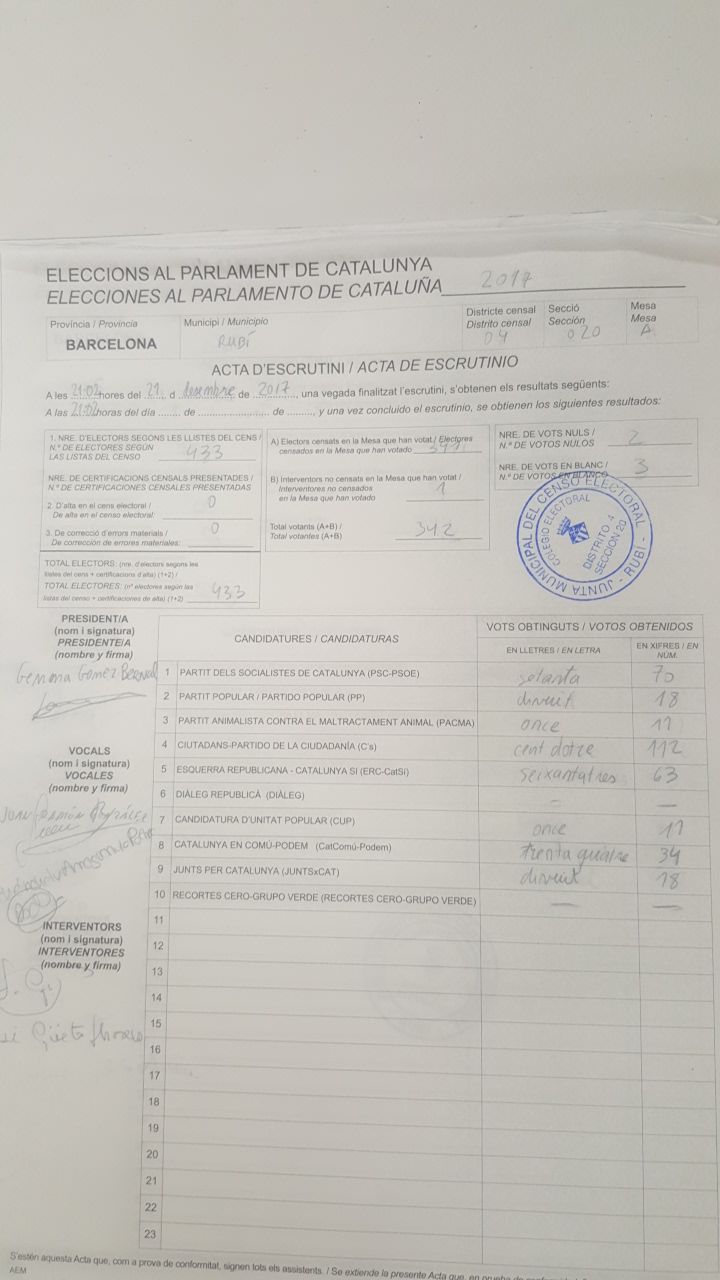 ELECCIONS AL PARLAMENT DE CATALUNYA
ELECCIONES AL PARLAMENTO DE CATALUÑA 2017
Provincia / Provincia
BARCELONA
Municipi / Municipio
RUBÍ
Districte censal
Distrito censal
04
Secció
Sección
020
Mesa
Mesa
A
ACTA D'ESCRUTINI / ACTA DE ESCRUTINIO
A les 21:02 hores del 21 d desembre de 2017, una vegada finalitzat l'escrutini, s'obtenen els resultats següents:
A las 21:02 horas del día ........ de ........................ de ........., y una vez concluido el escrutinio, se obtienen los siguientes resultados:
1. NRE. D'ELECTORS SEGONS LES LLISTES DEL CENS /
N.º DE ELECTORES SEGÚN
LAS LISTAS DEL CENSO 433
NRE. DE CERTIFICACIONS CENSALS PRESENTADES /
N.º DE CERTIFICACIONES CENSALES PRESENTADAS
2. D'alta en el cens electoral /
De alta en el censo electoral: 0
3. De correcció d'errors materials /
De corrección de errores materiales: 0
TOTAL ELECTORS: (nre. d'electors segons les
llistes del cens + certificacions d'alta) (1+2) /
TOTAL ELECTORES: (nº electores según las
listas del censo + certificaciones de alta) (1+2) 433
A) Electors censats en la Mesa que han votat / Electores
censados en la Mesa que han votado 341
B) Interventors no censats en la Mesa que han votat /
Interventores no censados
en la Mesa que han votado 1
Total votants (A+B) /
Total votantes (A+B) 342
NRE. DE VOTS NULS /
N.º DE VOTOS NULOS 2
NRE. DE VOTS EN BLANC /
N.º DE VOTOS EN BLANCO 3
JUNTA MUNICIPAL DEL CENSO ELECTORAL - RUBÍ -
COLEGIO ELECTORAL
DISTRITO 4
SECCION 20
PRESIDENT/A
(nom i signatura)
PRESIDENTE/A
(nombre y firma)
Gemma Gómez Bernal
VOCALS
(nom i signatura)
VOCALES
(nombre y firma)
INTERVENTORS
(nom i signatura)
INTERVENTORES
(nombre y firma)
CANDIDATURES / CANDIDATURAS
VOTS OBTINGUTS / VOTOS OBTENIDOS
EN LLETRES / EN LETRA
EN XIFRES / EN NÚM.
1 PARTIT DELS SOCIALISTES DE CATALUNYA (PSC-PSOE) setanta 70
2 PARTIT POPULAR / PARTIDO POPULAR (PP) divuit 18
3 PARTIT ANIMALISTA CONTRA EL MALTRACTAMENT ANIMAL (PACMA) once 11
4 CIUTADANS-PARTIDO DE LA CIUDADANÍA (C's) cent dotze 112
5 ESQUERRA REPUBLICANA - CATALUNYA SI (ERC-CatSí) seixantatres 63
6 DIÀLEG REPUBLICÀ (DIÀLEG) — —
7 CANDIDATURA D'UNITAT POPULAR (CUP) once 11
8 CATALUNYA EN COMÚ-PODEM (CatComú-Podem) trenta quatre 34
9 JUNTS PER CATALUNYA (JUNTSxCAT) divuit 18
10 RECORTES CERO-GRUPO VERDE (RECORTES CERO-GRUPO VERDE) — —
11
12
13
14
15
16
17
18
19
20
21
22
23
S'estén aquesta Acta que, com a prova de conformitat, signen tots els assistents. / Se extiende la presente Acta que, en prueba de
AEM